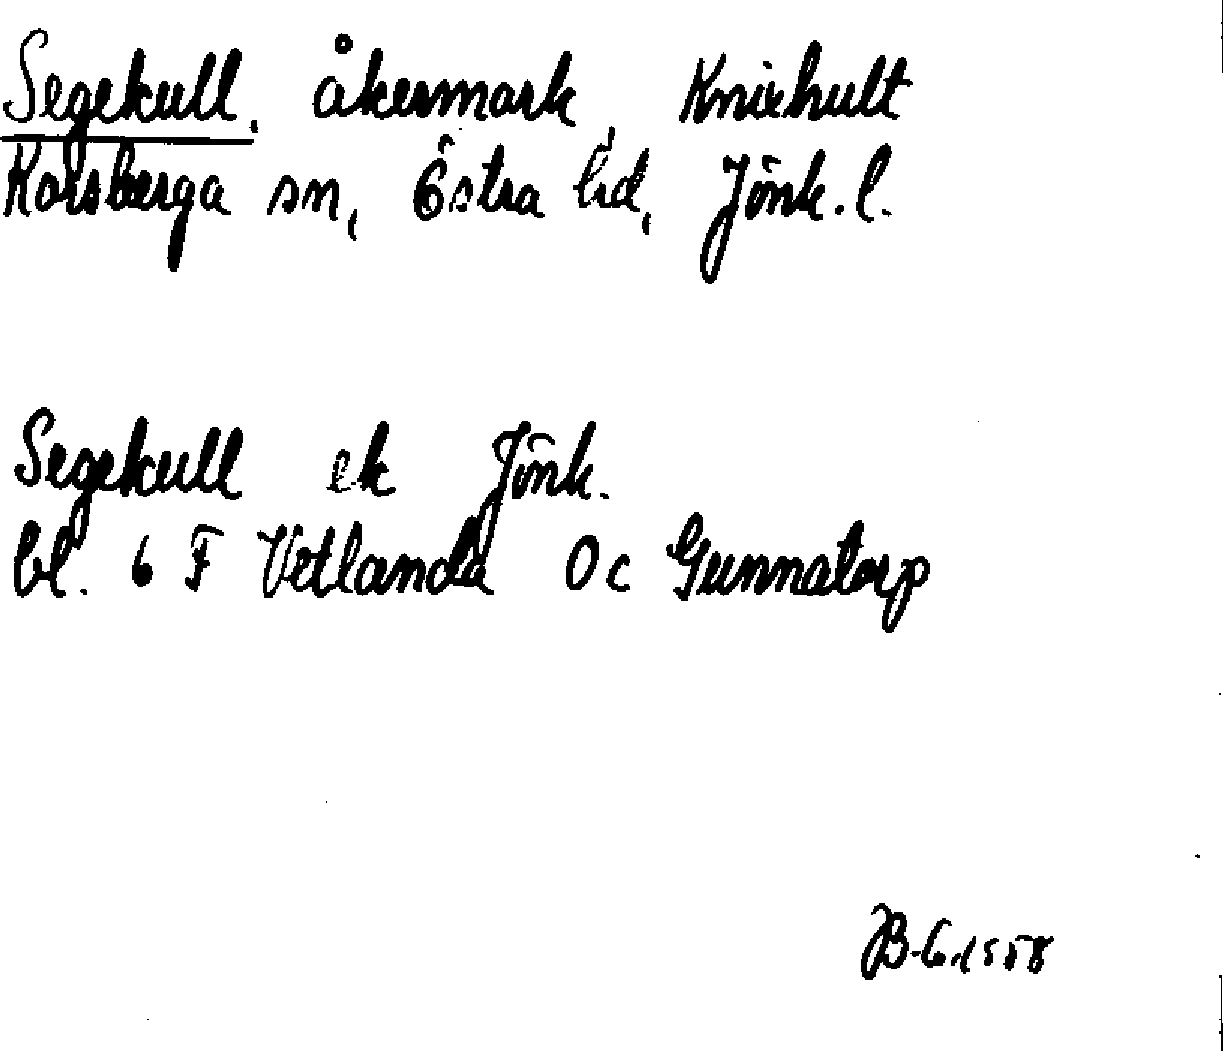 Segekull, åkermark, Knixhult
Korsberga sn, Östra hd, Jönk. l.
Segekull ek Jönk.
bl. 6 F Vetlanda 0 c Gunnatorp